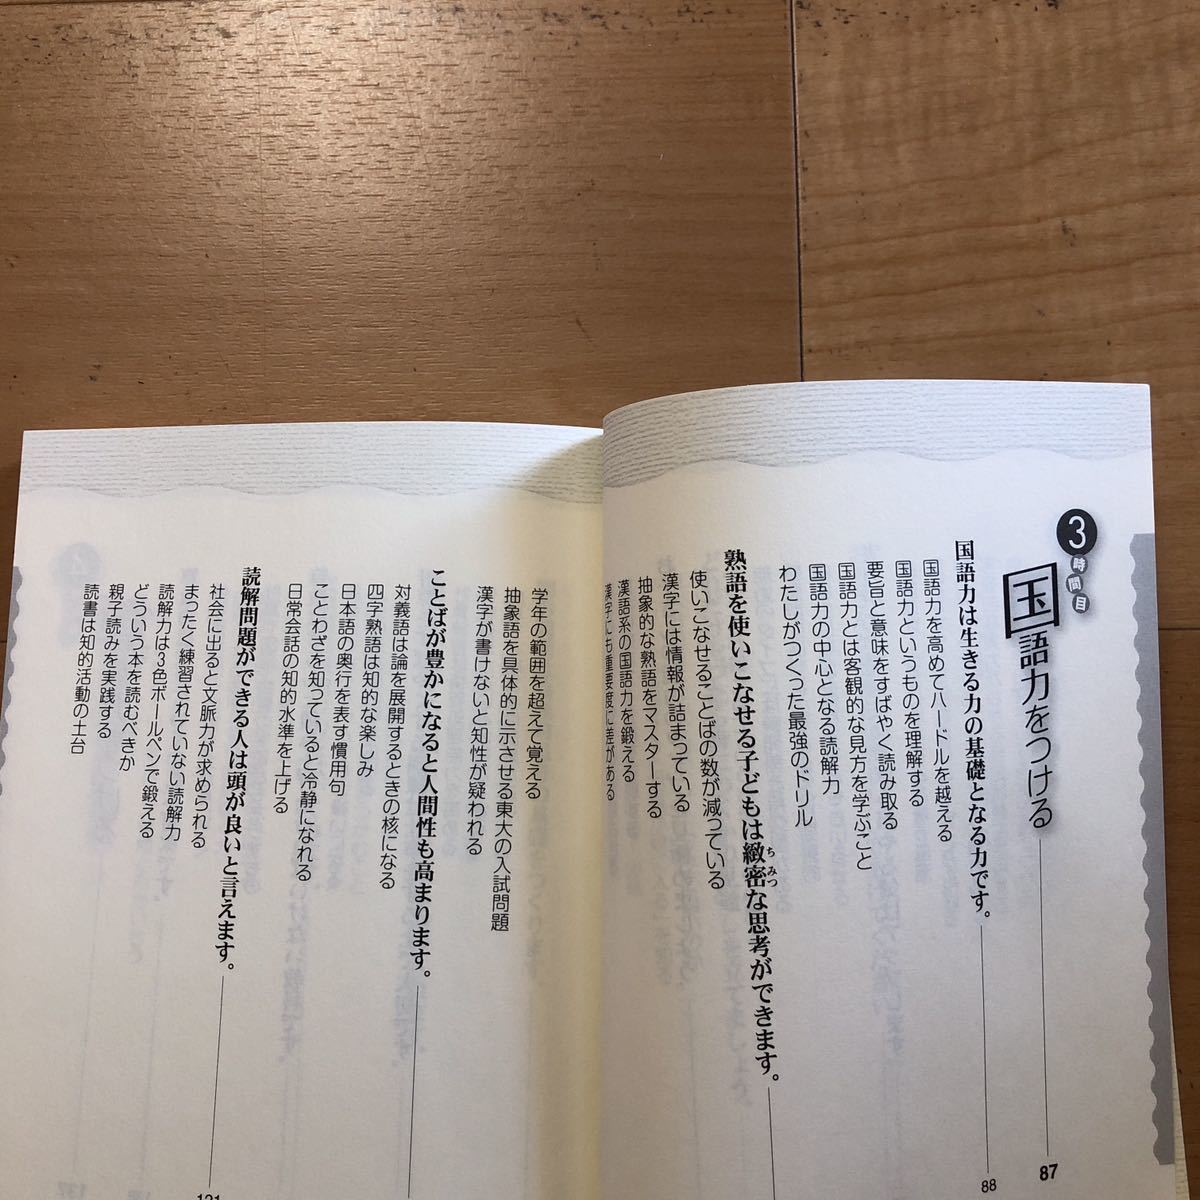 3時間目
国語力をつける
87
国語力は生きる力の基礎となる力です。
88
国語力を高めてハードルを越える
国語力というものを理解する
要旨と意味をすばやく読み取る
国語力とは客観的な見方を学ぶこと
国語力の中心となる読解力
わたしがつくった最強のドリル
熟語を使いこなせる子どもは緻密な思考ができます。
ちみつ
使いこなせることばの数が減っている
漢字には情報が詰まっている
抽象的な熟語をマスターする
漢語系の国語力を鍛える
漢字にも重要度に差がある
学年の範囲を超えて覚える
抽象語を具体的に示させる東大の入試問題
漢字が書けないと知性が疑われる
ことばが豊かになると人間性も高まります。
対義語は論を展開するときの核になる
四字熟語は知的な楽しみ
日本語の奥行を表す慣用句
ことわざを知っていると冷静になれる
日常会話の知的水準を上げる
読解問題ができる人は頭が良いと言えます。
121
社会に出ると文脈力が求められる
まったく練習されていない読解力
読解力は3色ボールペンで鍛える
どういう本を読むべきか
親子読みを実践する
読書は知的活動の土台